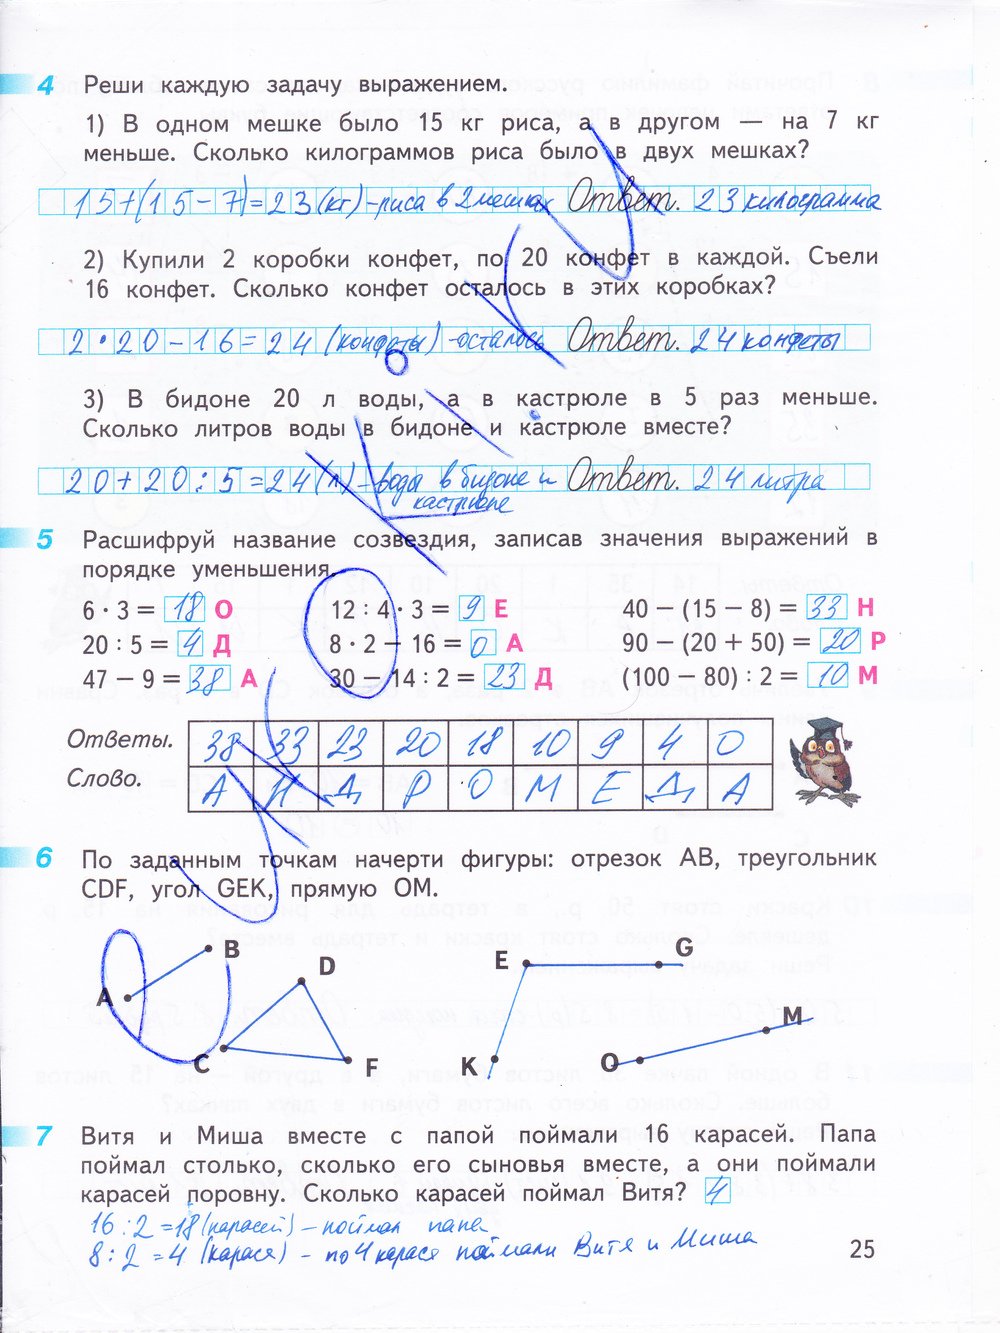 4 Реши каждую задачу выражением.
1) В одном мешке было 15 кг риса, а в другом — на 7 кг
меньше. Сколько килограммов риса было в двух мешках?
15+(15-7)=23(кг)-риса в 2 мешках Ответ. 23 килограмма
2) Купили 2 коробки конфет, по 20 конфет в каждой. Съели
16 конфет. Сколько конфет осталось в этих коробках?
2·20-16=24 (конфеты)-осталось Ответ. 24 конфеты
3) В бидоне 20 л воды, а в кастрюле в 5 раз меньше.
Сколько литров воды в бидоне и кастрюле вместе?
20+20:5=24(л)-воды в бидоне и Ответ. 24 литра
кастрюле
5 Расшифруй название созвездия, записав значения выражений в
порядке уменьшения.
6 · 3 = 18 О 12 : 4 · 3 = 9 Е 40 − (15 − 8) = 33 Н
20 : 5 = 4 Д 8 · 2 − 16 = 0 А 90 − (20 + 50) = 20 Р
47 − 9 = 38 А 30 − 14 : 2 = 23 Д (100 − 80) : 2 = 10 М
Ответы. 38 33 23 20 18 10 9 4 0
Слово. А Н Д Р О М Е Д А
6 По заданным точкам начерти фигуры: отрезок АВ, треугольник
CDF, угол GEK, прямую ОМ.
A B C D F E G K O M
7 Витя и Миша вместе с папой поймали 16 карасей. Папа
поймал столько, сколько его сыновья вместе, а они поймали
карасей поровну. Сколько карасей поймал Витя? 4
16:2=18(карасей)-поймал папа
8:2=4 (карася) - по 4 карася поймали Витя и Миша
25